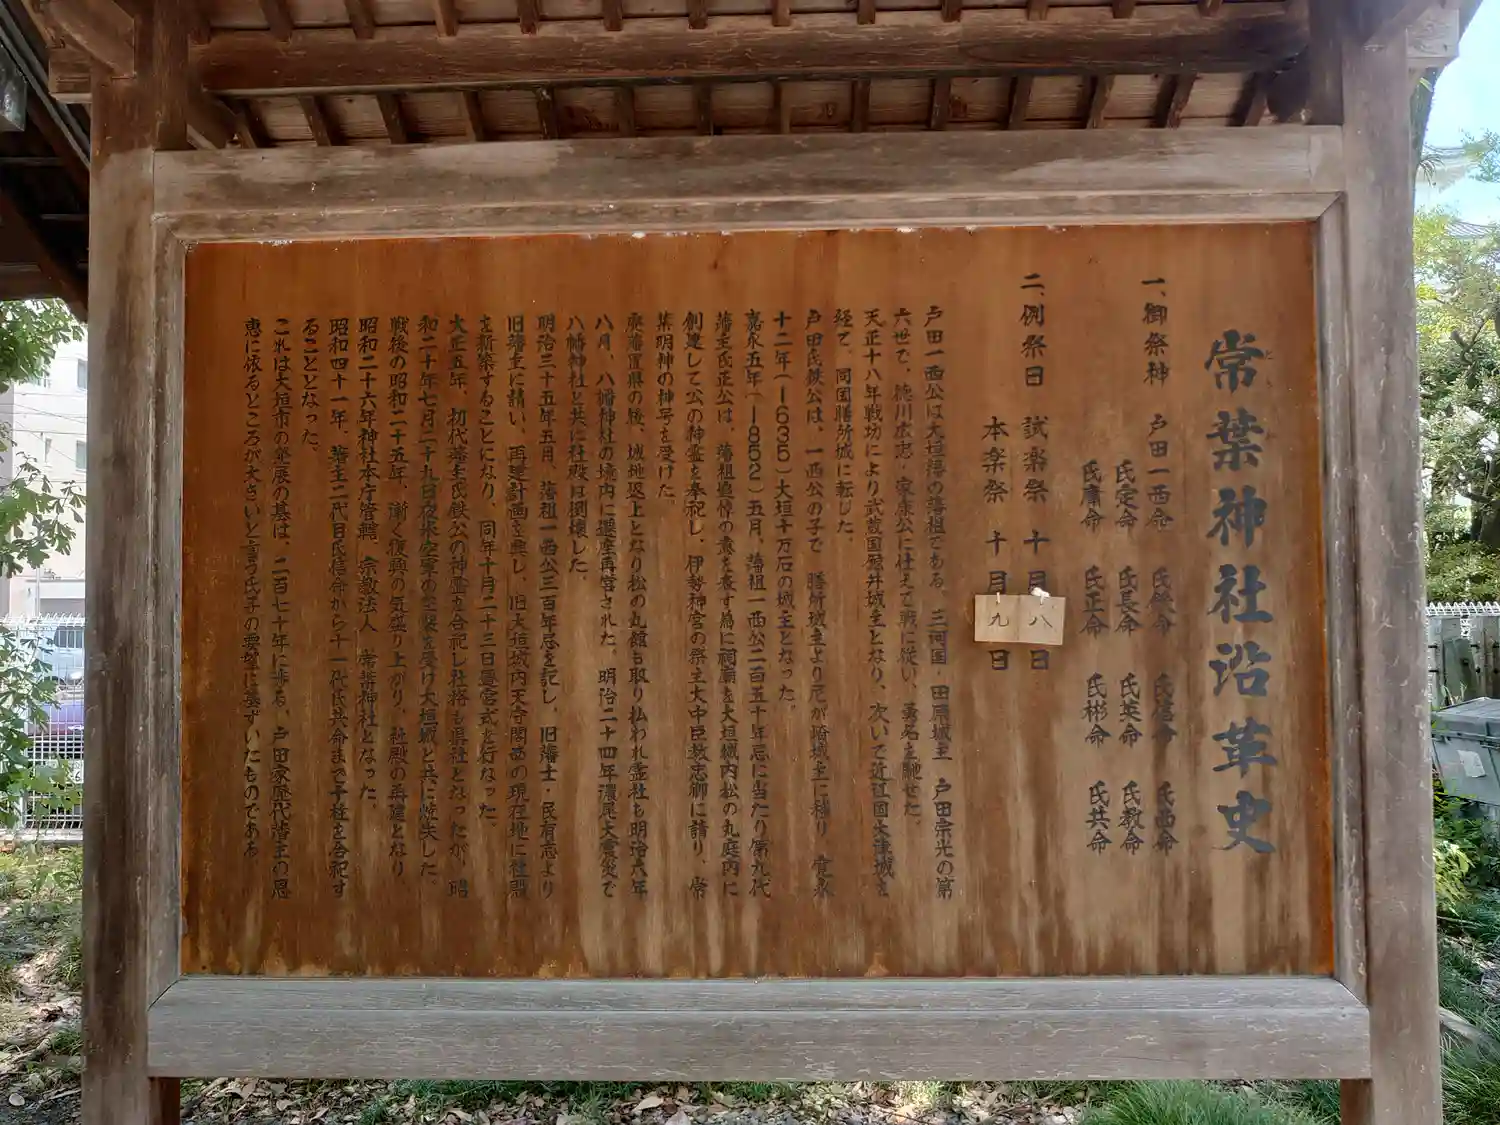 常葉神社沿革史
一、御祭神　戸田一西命　氏鉄命　氏信命　氏西命
氏定命　氏長命　氏英命　氏教命
氏庸命　氏正命　氏彬命　氏共命
二、例祭日　試楽祭　十月八日
本楽祭　十月九日
戸田一西公は大垣藩の藩祖である。三河国・田原城主　戸田宗光の第
六世で、徳川広忠・家康公に仕えて戦に従い、勇名を馳せた。
天正十八年戦功により武蔵国鯨井城主となり、次いで近江国大津城を
経て、同国膳所城に転じた。
戸田氏鉄公は、一西公の子で　膳所城主より尼が崎城主に移り　寛永
十二年（1635）大垣十万石の城主となった。
嘉永五年（1852）五月、藩祖一西公二百五十年忌に当たり第九代
藩主氏正公は、藩祖追悼の意を表す為に祠廟を大垣城内松の丸庭内に
創建して公の神霊を奉祀し、伊勢神宮の祭主大中臣教忠卿に請り、常
葉明神の神号を受けた。
廃藩置県の後、城地恐上となり松の丸館も取り払われ霊社も明治六年
八月、八幡神社の境内に遷座再営された。明治二十四年濃尾大震災で
八幡神社と共に社殿は倒壊した。
明治三十五年五月、藩祖一西公三百年忌を記し、旧藩士・民有志より
旧藩主に請い、再建計画を興し、旧大垣城内天守閣西の現在地に社殿
を新築することになり、同年十月二十三日遷宮式を行なった。
大正五年、初代藩主氏鉄公の神霊を合祀し社格も県社となったが、昭
和二十年七月二十九日夜米空軍の空襲を受け大垣城と共に焼失した。
戦後の昭和二十五年、漸く復興の気盛り上がり、社殿の再建となり、
昭和二十六年神社本庁管轄　宗教法人　常葉神社となった。
昭和四十一年、藩主二代目氏信命から十一代氏共命まで予柱を合祀す
ることとなった。
これは大垣市の発展の基は、二百七十年に渉る、戸田家歴代藩主の恩
恵に依るところが大きいと言う氏子の要望に基ずいたものである